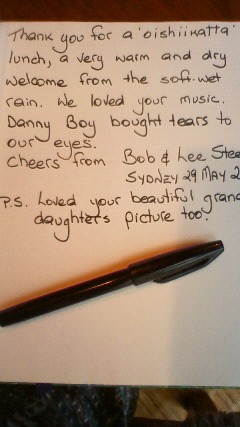 Thank you for a 'oishiikatta'
lunch, a very warm and dry
welcome from the soft-wet
rain. We loved your music.
Danny Boy bought tears to
our eyes.
Cheers from Bob & Lee
SYDNEY 29 MAY
P.S. Loved your beautiful
daughter's picture too.